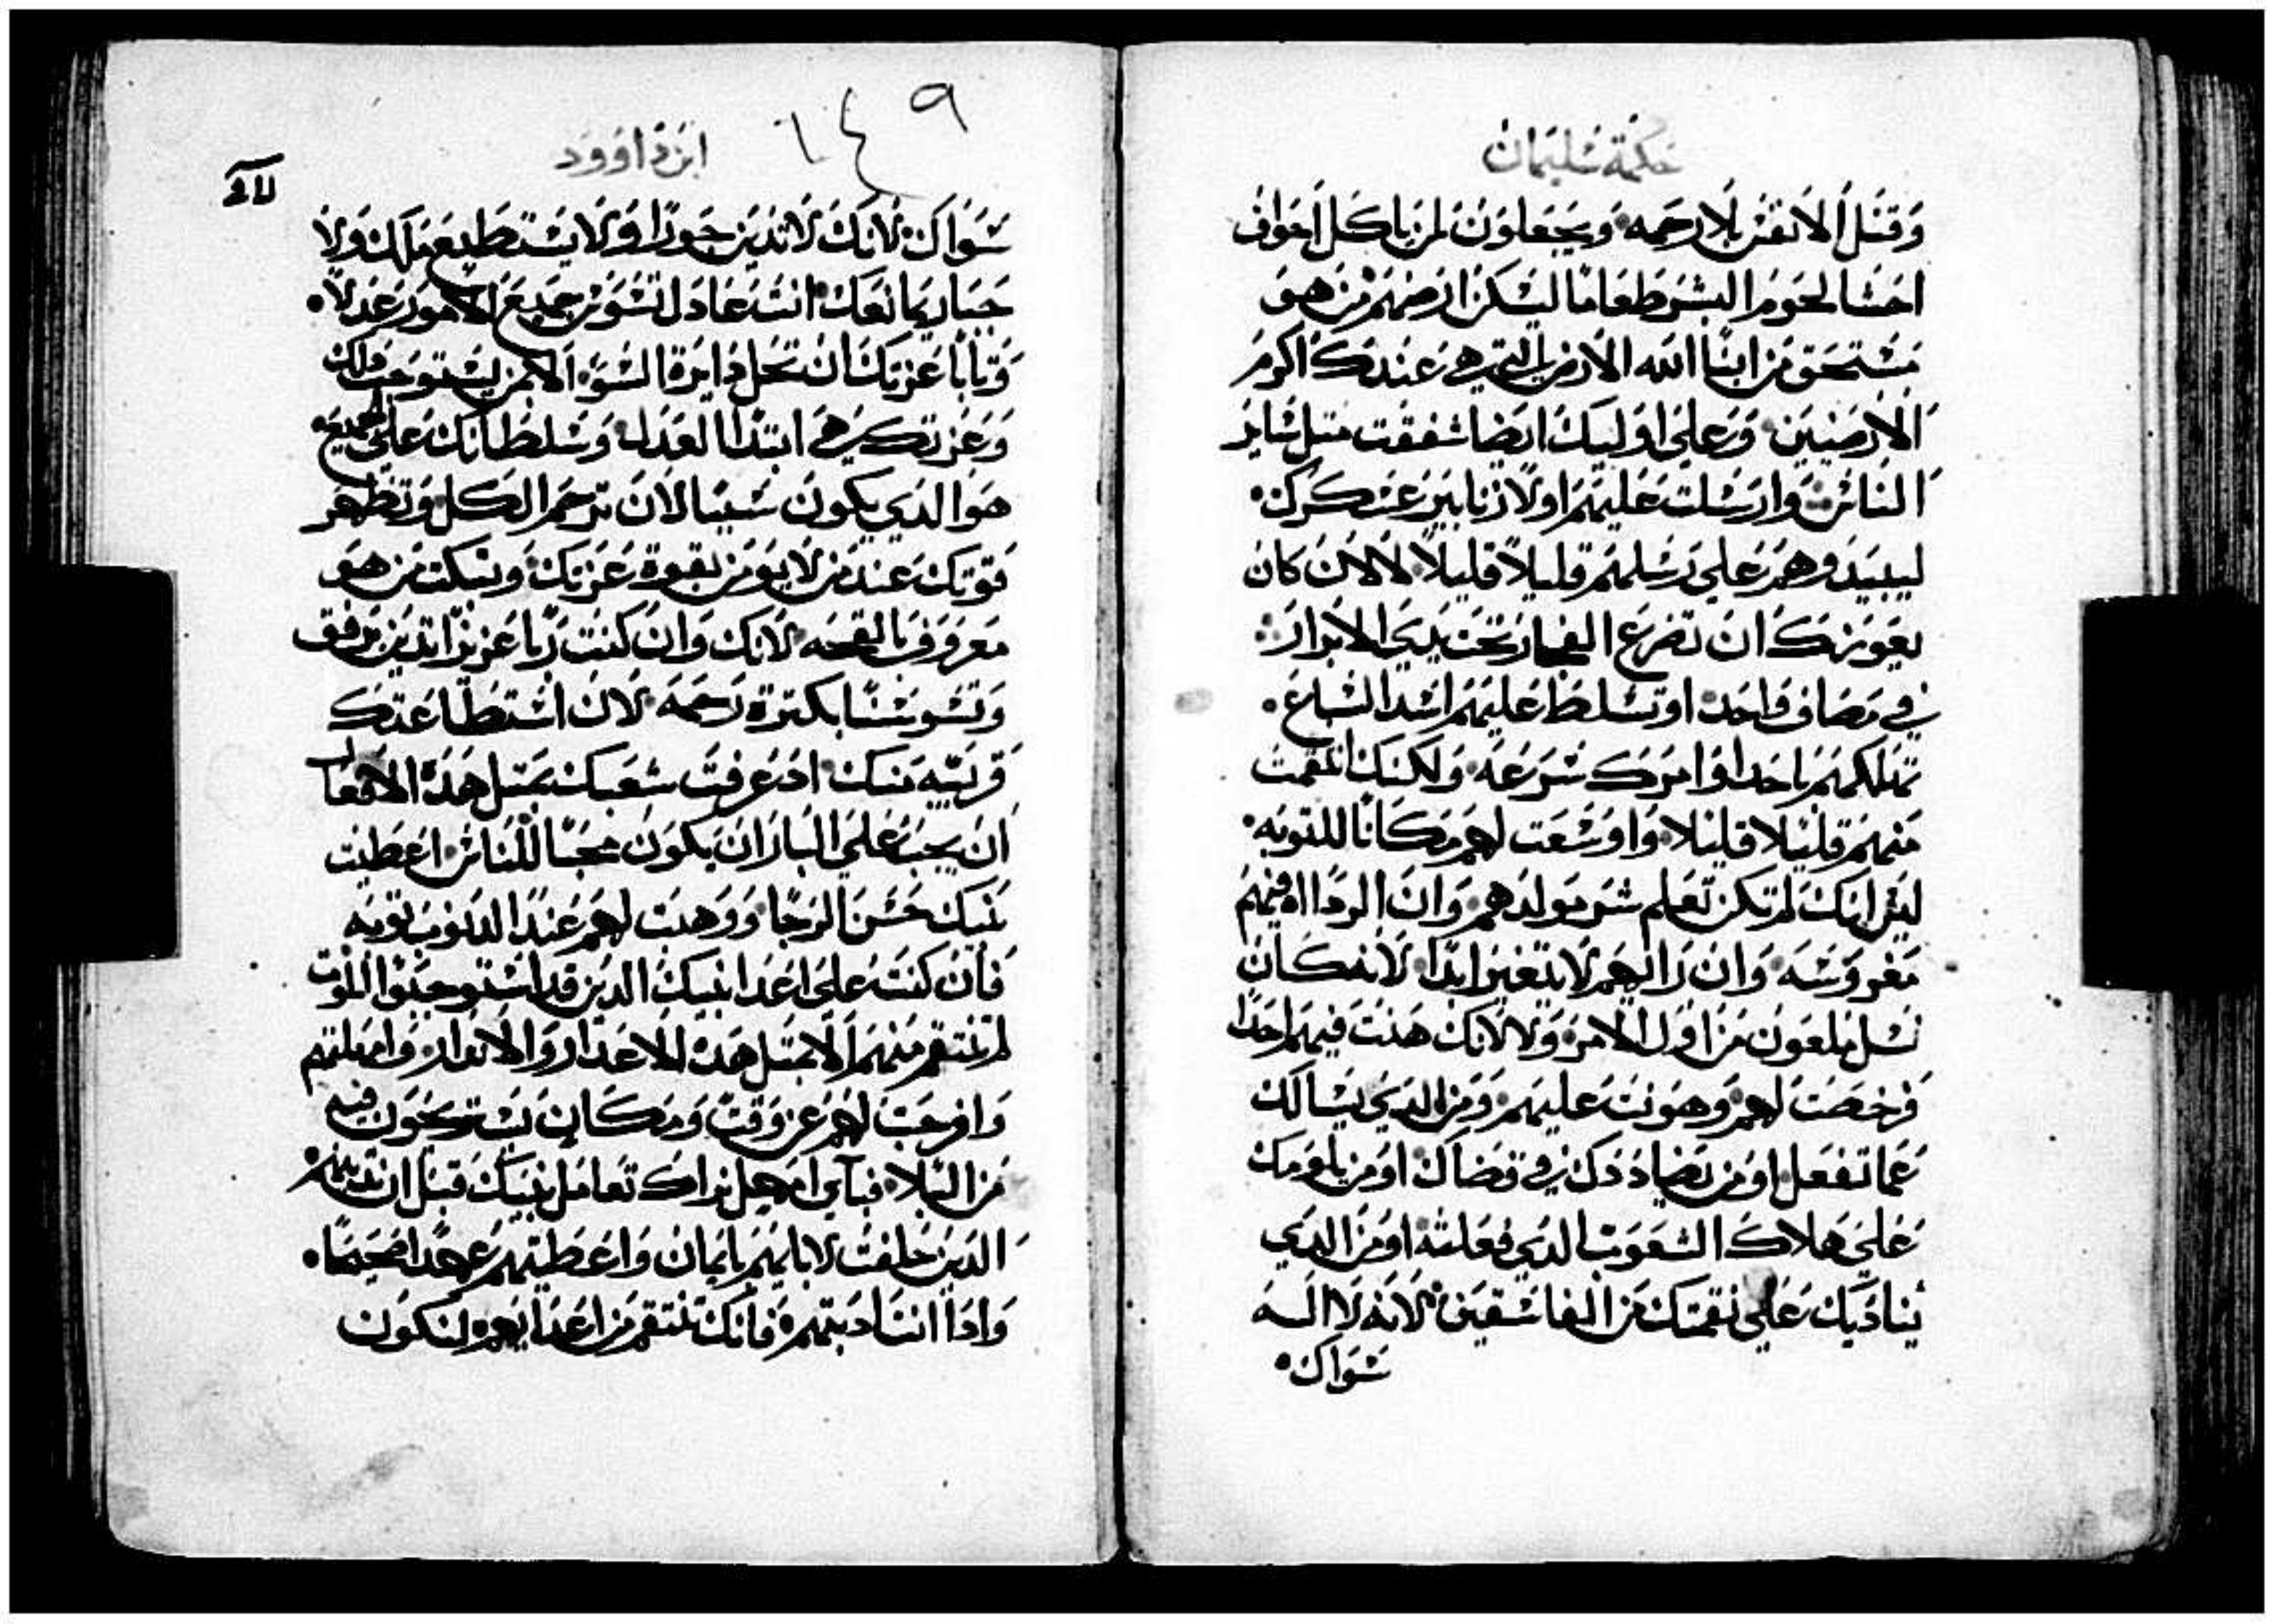 حكمة سليمان
وقتل الانفس بلا رحمه وبجعلون لمن ياكل اجواف
احشا لحوم البشر طعاما ليسكن ارضهم من هو
مستحق من ابنا الله الارض التي هي عندك اكرم
الارضيين وعلي اوليك ايضا شفقت متل ساير
الناس وارسلت عليهم اولا زنابير عسكرك
ليبيدوهم علي رسلهم قليلا قليلا لا لان كان
يعوزك ان تضرع الفجار تحت يدي الابرار
في مصاف واحد او تسلط عليهم اشد السباع
تهلكهم باحد اوامرك سرعه ولكنك انتقمت
منهم قليلا قليلا واوسعت لهم مكانا للتوبه
ليس انك لم تكن تعلم شر مولدهم وان الرداه فيهم
مغروسه وان رايهم لا يتغير ابدا لانه كان
نسل ملعون من اول الامر ولا لانك هنت فيهم احدا
رخصت لهم وهونت عليهم ومن الدي يسالك
عما تفعل او من يضاددك في قضاك او من يلومك
علي هلاك الشعوب الدي فعلته او من الدي
يناديك علي نقمتك من الفاسقين لانه لا اله
سواك
ابن داوود
١٤٩
سواك لانك لا تدين جورا ولا يستطيع ملك ولا
جبار يمانعك انت عادل تسوس جميع الامور عدلا
وتابا عزتك ان تحل دايرة السو الا بمن يستوجب دلك
وعزتك هي ابتدا العدل وسلطانك علي الجميع
هو الدي يكون سببا لان ترحم الكل وتظهر
قوتك عند من لا يومن بقوة عزتك وتبكت من هو
معروف بالقحه لانك وان كنت ربا عزيزا تدين برفق
وتسوسنا بكترة رحمه لان استطاعتك
قريبه منك اد عرفت شعبك بمتل هده الافعال
ان يجب علي البار ان يكون محبا للناس اعطيت
بنيك حسن الرجا ووهبت لهم عند الدنوب توبه
فان كنت علي اعدا بنيك الدين قد استوجبوا الموت
لم تنتقم منهم الا بمتل هده الاعدار والاندار وامهلتهم
وافرجت لهم عن وقت ومكان يستريحون فيه
من البلا فباي امهل نراك تعامل بنيك قبل ان تدينهم
الدين حلفت لابايهم بايمان واعطيتهم عهدا صحيحا
وادا انت ادبتهم فانك تنتقم من اعدايهم لنكون